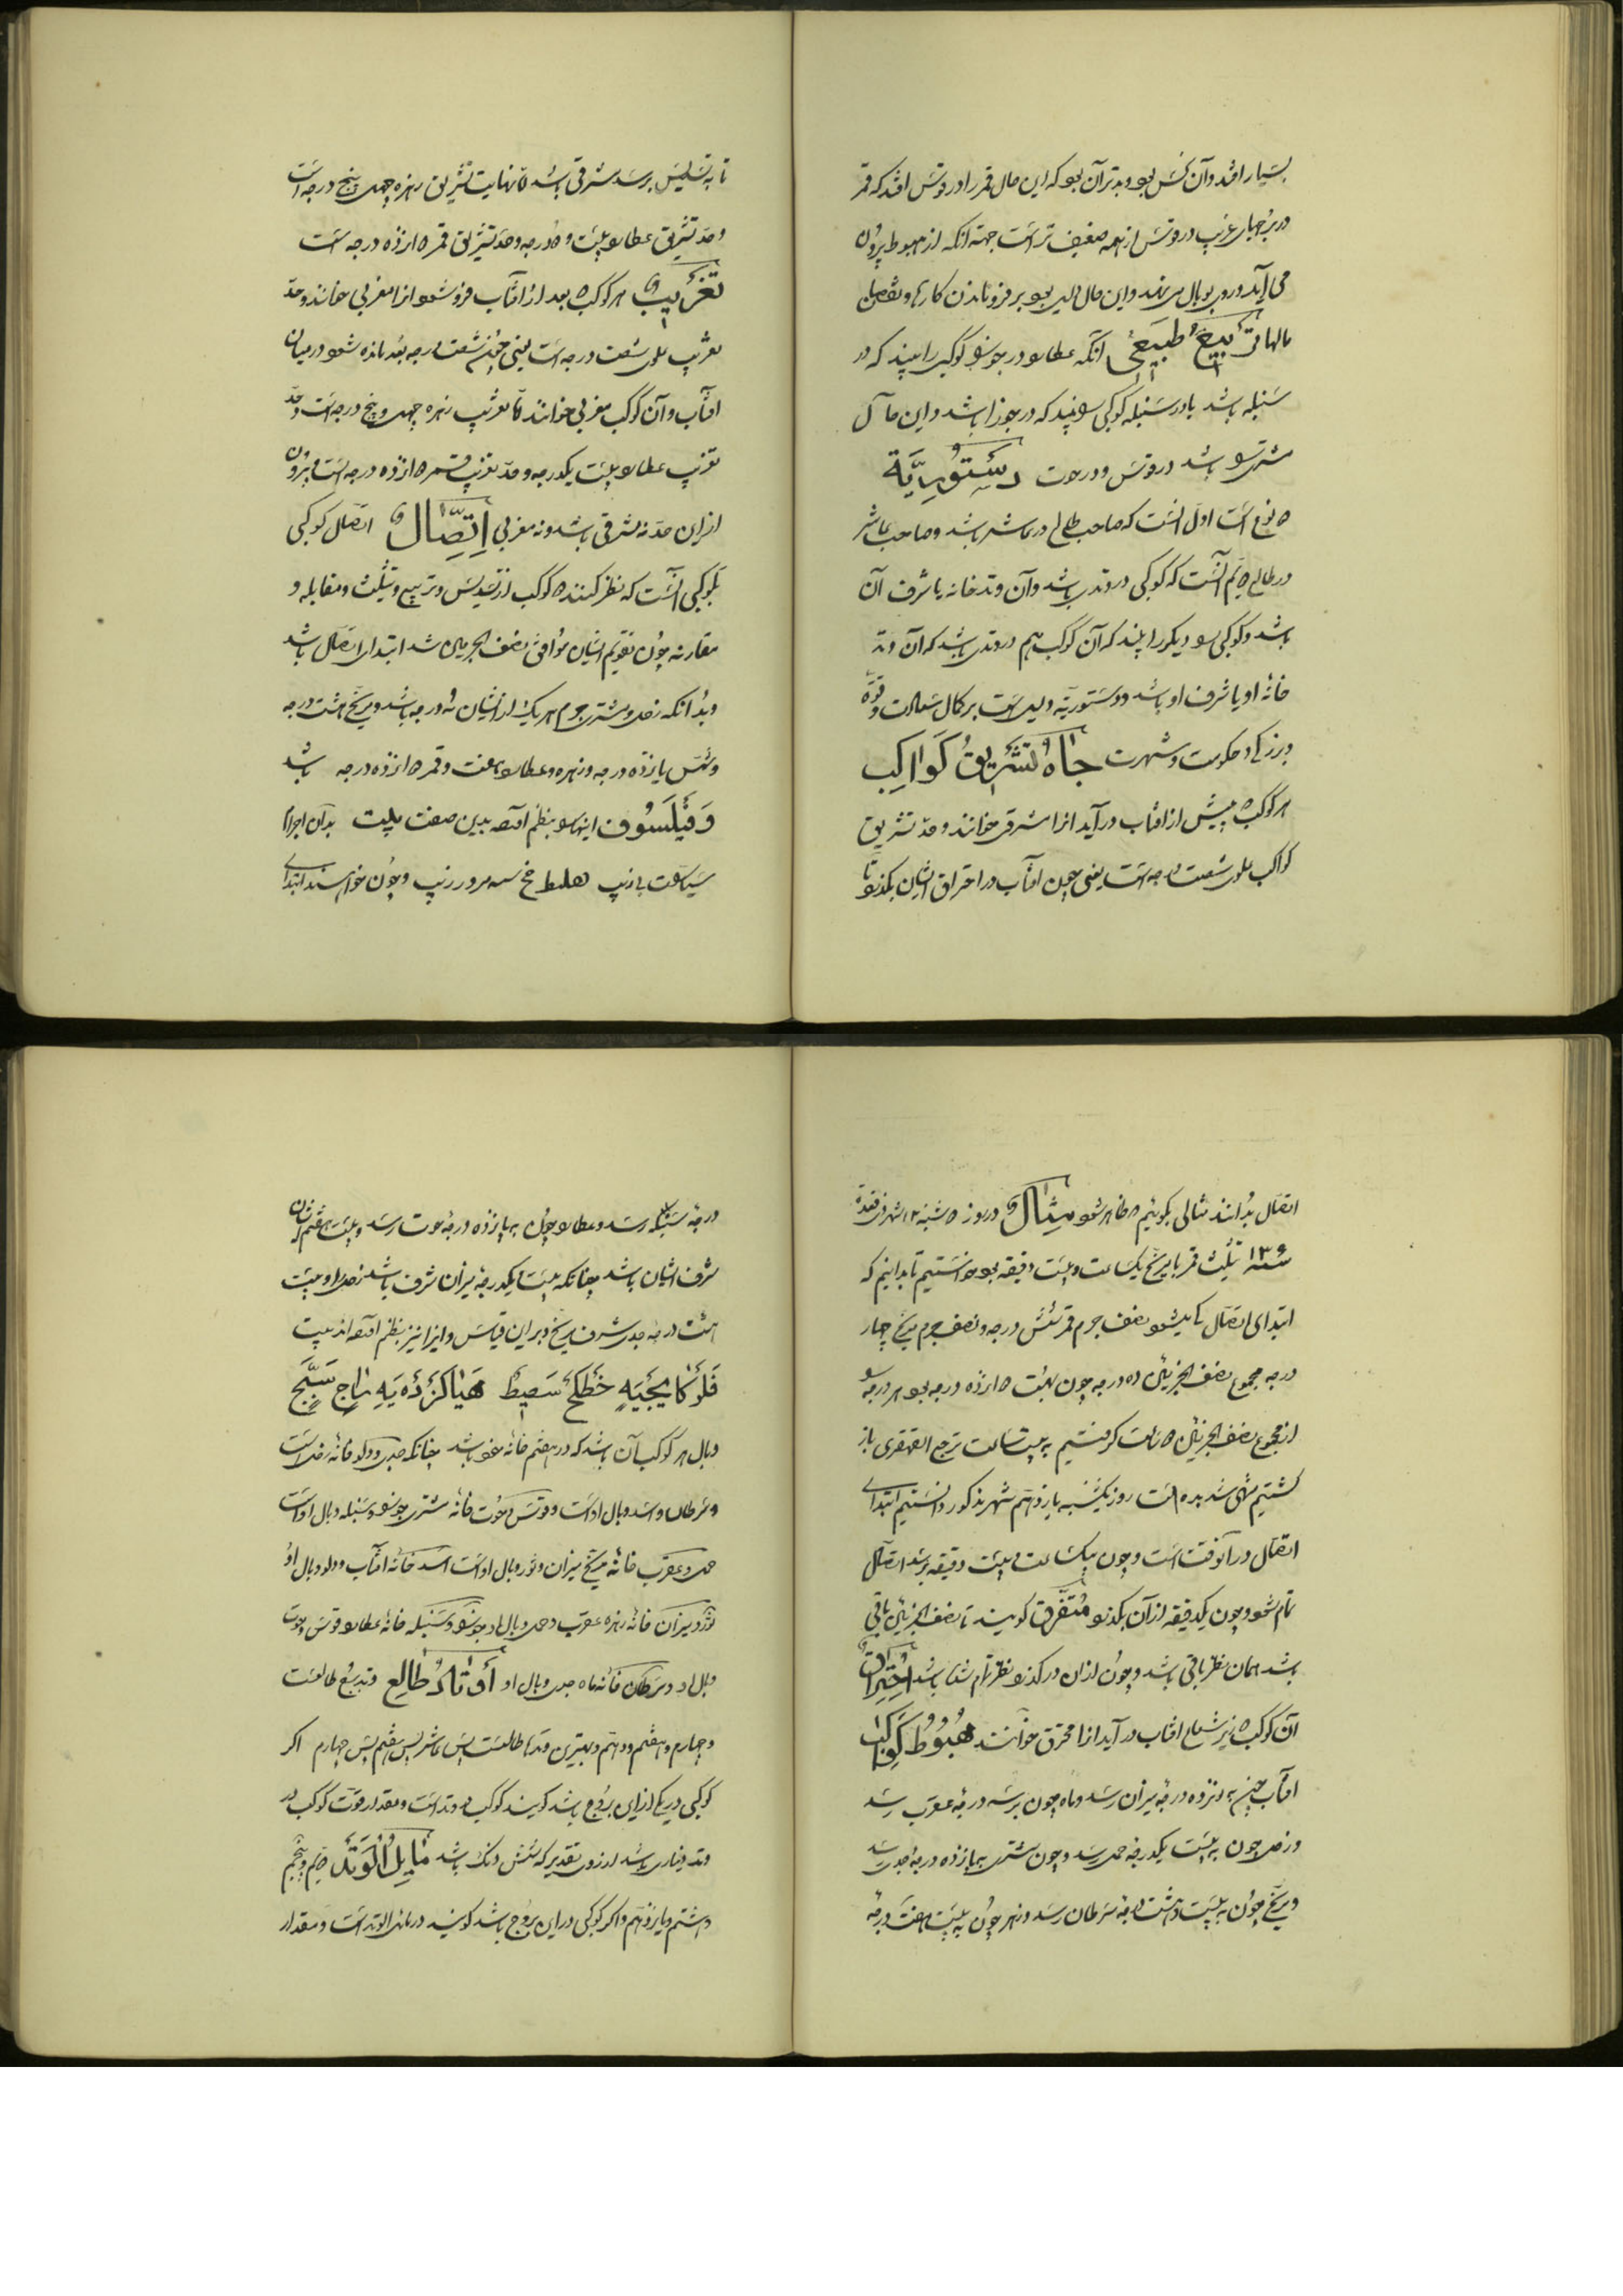 بسیار افتد وآن نحس بود وبدتر آن بود که این حال قمر را در قوس افتد که قمر
در برجهای غریب در قوس از همه ضعیف تر است جهة آنکه از هبوط بیرون
می آید و روی بوبال می نهد واین حال دلیل بود بر فروماندن کارها ونقصان
مالها تربیع طبیعی آنکه عطارد در جوزا کوکبی را بیند که در
سنبله باشد یا در سنبله کوکبی را بیند که در جوزا باشد واین حال
مشتری را باشد در قوس ودر حوت دستوریة
دو نوع است اول آنست که صاحب طالع در عاشر باشد وصاحب عاشر
در طالع دویم آنست که کوکبی در وتدی باشد وآن وتد خانه یا شرف آن
باشد وکوکبی دیکر را بیند که آن کوکب هم در وتدی باشد که آن وتد
خانهٔ او یا شرف او باشد ودستوریة دلیلست بر کمال سعادت وقوة
وبزرکی وحکومت وشهرت جاه تشریق کواکب
هر کوکب که پیش از افتاب در آید انرا مشرقی خوانند وحد تشریق
کواکب علوی شصت درجه است یعنی چون آفتاب در احتراق ایشان بکذرد تا
تا به تسدیس برسد مشرقی باشد اما نهایت تشریق زهره چهل وپنج درجه است
وحد تشریق عطارد بیست و درجه وحد تشریق قمر دوازده درجه است
تغریب هر کوکب که بعد از افتاب فرو شود انرا مغربی خوانند وحد
تغریب علوی شصت درجه است یعنی چون شصت درجه بعد مانده شود در میان
افتاب وآن کوکب مغربی خوانند اما تغریب زهره چهل وپنج درجه است وحد
تغریب عطارد بیست یکدرجه وحد تغریب قمر دوازده درجه است وبیرون
از این حد نه مشرقی باشد ونه مغربی اتصال اتصال کوکبی
بکوکبی آنست که نظر کنند دو کوکب از تسدیس وتربیع وتثلیث ومقابله و
مقارنه چون تقویم ایشان موافق نصف الجرمین شد ابتدای اتصال باشد
وبدانکه زحل ومشتری جرم هر یک از ایشان نه درجه باشد ومریخ هشت درجه
وشمس پانزده درجه وزهره وعطارد هفت وقمر دوازده درجه باشد
وفیلسوف اینها را بنظم آورده بدین صفت بیت بدان اجرام
سیاعت بی زیب هلط خ سه مرور زیب وچون خواستند ابتدای
اتصال بدانند مثالی بکوئیم تا ظاهر شود مثال در روز شنبه ۱۲ شهر ذی قعده
سنه ۱۳۶ تثلیث قمر با مریخ یک ساعت وبیست دقیقه بود خواستیم تا بدانیم که
ابتدای اتصال کی میشود نصف جرم قمر شش درجه ونصف جرم مریخ چهار
درجه مجموع نصف الجرمین ده درجه چون بهت دوازده درجه بود هر درجه را
از مجموع نصف الجرمین دو ساعت کرفتیم به بیست ساعت ترجع القهقری باز
کشتیم منتهی شد بده ساعت روز یکشنبه یازدهم شهر مذکور دانستیم ابتدای
اتصال در آنوقت است وچون بیکساعت وبیست دقیقه برسد اتصال
تمام شود وچون یکدقیقه از آن بکذرد متفرق کویند تا نصف الجرمین باقی
باشد همان نظر باقی باشد وچون از ان در کذرد نظر تمام شده باشد احتراق
آن کوکب که زیر شعاع افتاب در آید انرا محترق خوانند هبوط کواکب
افتاب چون به نوزده درجهٔ میزان رسد وماه چون برسد سه درجهٔ عقرب رسد
وزحل چون به بیست یکدرجهٔ حمل رسد وچون مشتری به پانزده درجهٔ جدی رسد
ومریخ چون به بیست وهشت درجهٔ سرطان رسد وزهره چون به بیست هفت درجهٔ
درجهٔ سنبله رسد وعطارد چون به پانزده درجهٔ حوت رسد وبیست هفتم از آن
شرف ایشان باشد چنانکه بیست یکدرجهٔ میزان شرف باشد زحل را وبیست
هشت درجه جدی شرف مریخ وبر این قیاس وانرا نیز بنظم آورده اند بیت
وبال هر کوکب آن باشد که در هفتم خانهٔ خود باشد چنانکه جدی ودلو خانهٔ زحل است
وسرطان واسد وبال او است وقوس وحوت خانهٔ مشتری جوزا وسنبله وبال او است
حمل وعقرب خانهٔ مریخ میزان وثور وبال او است اسد خانهٔ افتاب ودلو وبال او
ثور ومیزان خانهٔ زهره عقرب وحمل وبال او جوزا وسنبله خانهٔ عطارد قوس وحوت
وبال او وسرطان خانهٔ ماه جدی وبال او اوتاد طالع وتد برج طالعست
وچهارم وهفتم ودهم وبهترین وتدها طالعست پس عاشر پس هفتم پس چهارم اکر
کوکبی در یکی از این بروج باشد کویند کوکب در وتد است ومقدار قوت کوکب در
وتد دیناری باشد از زر بتقدیر که شش دانک باشد مایل الوتد دویم وپنجم
وهشتم ویازدهم واکر کوکبی در این بروج باشد کویند در مایل الوتد است ومقدار